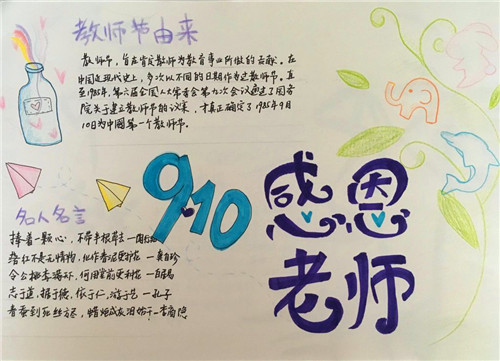 教师节由来
教师节，旨在肯定教师为教育事业所做的贡献。在
中国近现代史上，多次以不同的日期作为过教师节。直
至1985年，第六届全国人大常委会第九次会议通过了国务
院关于建立教师节的议案，才真正确定了1985年9月
10日为中国第一个教师节。
9.10
感恩
老师
名人名言
捧着一颗心，不带半根草去
落红不是无情物，化作春泥更护花 一龚自珍
令公桃李满 何用堂前更种花 一白居易
志于道，据于德，依于仁，游于艺 一孔子
春蚕到死丝方尽，蜡炬成灰泪始干 一李商隐